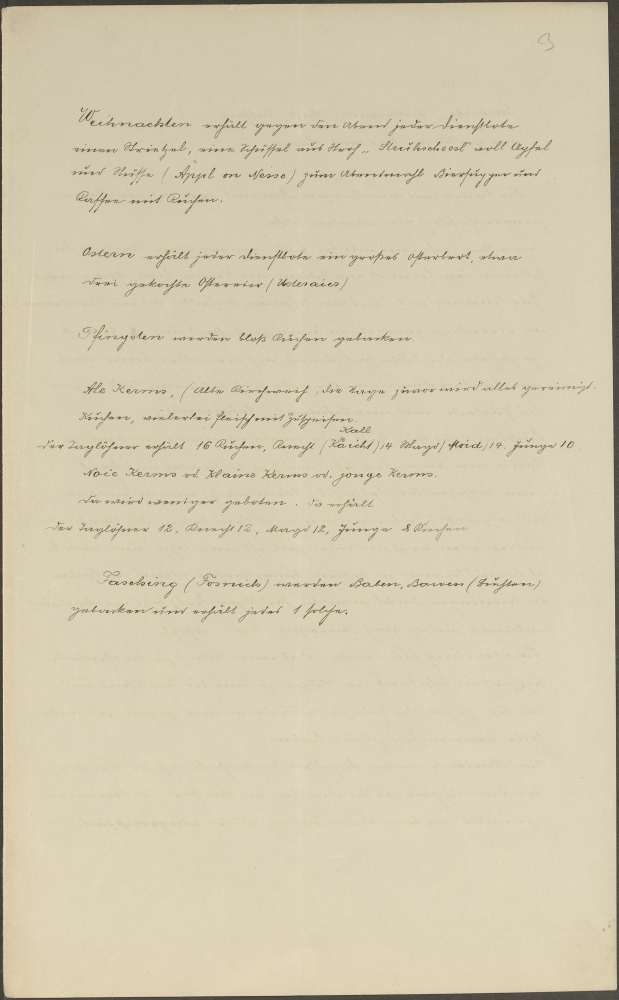 3
Weihnachten erhält gegen den Abend jeder Dienstbote
einen Striezel, eine Schüssel aus Stroh „Struhscheosl" voll Äpfel
und Nüsse (Äppl on Nesse) zum Abendmahl Biersupper und
Kaffee mit Kuchen.
Ostern erhält jeder Dienstbote ein großes Osterbrot, etwa
drei gekochte Ostereier (Usteraier)
Pfingsten werden bloß Kuchen gebacken.
Ale Kerms, (Alte Kirchweih, die Tage zuvor wird alles gereinigt.
Kuchen, vielerlei Fleisch mit Zuspeisen.
Kall
Der Taglöhner erhält 16 Kuchen, Knecht (Käicht) 14 Magd (Moid) 14. Junge 10
Naie Kerms od. Klaine Kerms od. jonge Kerms.
Da wird weniger geboten. Da erhält
der Taglöhner 12, Knecht 12, Magd 12, Junge 8 Kuchen
Fasching (Fosnich) werden Baben, Bawen (Buchten)
gebacken und erhält jedes 1 solche.